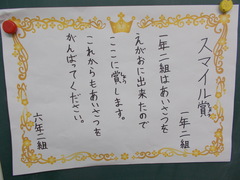 スマイル賞
一年二組
一年二組はあいさつを
えがおに出来たので
ここに賞します。
これからもあいさつを
がんばってください。
六年二組